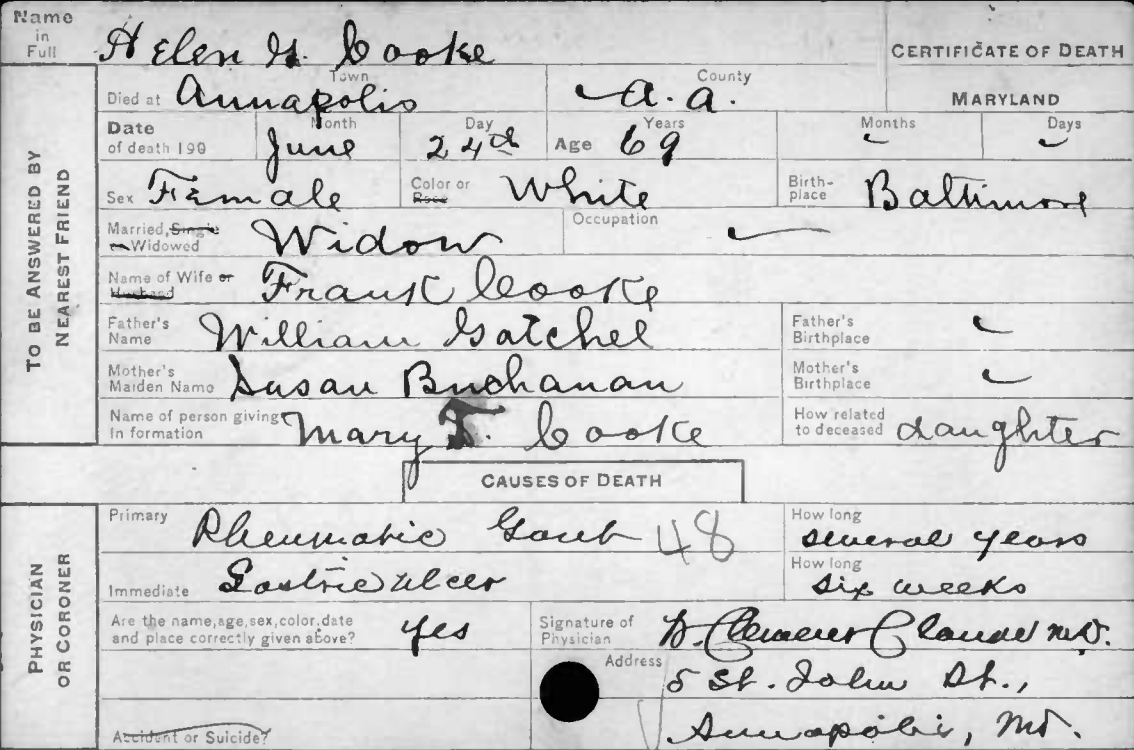 Name in Full Helen G. Cooke
CERTIFICATE OF DEATH
TO BE ANSWERED BY NEAREST FRIEND
Died at Annapolis Town A. A. County
MARYLAND
Date of death 190 Month June Day 24th Age 69 Years Months Days
Sex Female Color or Race White Birth-place Baltimore
Married, Single Widowed Widow Occupation
Name of Wife or Husband Frank Cooke
Father's Name William Gatchel Father's Birthplace
Mother's Maiden Name Susan Buchanan Mother's Birthplace
Name of person giving In formation Mary F. Cooke How related to deceased daughter
CAUSES OF DEATH
PHYSICIAN OR CORONER
Primary Rheumatic Gout 48 How long several years
Immediate Gastric ulcer How long six weeks
Are the name, age, sex, color, date and place correctly given above? Yes Signature of Physician Claude M.D.
Address 5 St. John St.,
Accident or Suicide? Annapolis, Md.